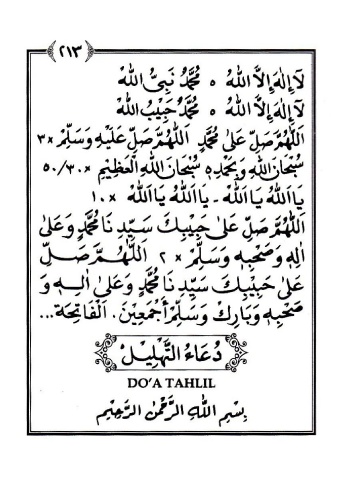 ٢١٣
لَآ اِلٰهَ اِلَّا اللهُ ٥ مُحَمَّدٌ نَبِيُّ اللهِ
لَآ اِلٰهَ اِلَّا اللهُ ٥ مُحَمَّدٌ حَبِيْبُ اللهِ
اَللّٰهُمَّ صَلِّ عَلٰى مُحَمَّدٍ اَللّٰهُمَّ صَلِّ عَلَيْهِ وَسَلِّمْ ×٣
سُبْحَانَ اللهِ وَبِحَمْدِهِ سُبْحَانَ اللهِ الْعَظِيْمِ ×٣٠/٥٠
يَا اَللهُ يَا اَللهُ - يَا اَللهُ يَا اَللهُ ×١٠
اَللّٰهُمَّ صَلِّ عَلٰى حَبِيْبِكَ سَيِّدِنَا مُحَمَّدٍ وَعَلٰى
اٰلِهِ وَصَحْبِهِ وَسَلِّمْ ×٢ اَللّٰهُمَّ صَلِّ
عَلٰى حَبِيْبِكَ سَيِّدِنَا مُحَمَّدٍ وَعَلٰى اٰلِهِ وَ
صَحْبِهِ وَبَارِكْ وَسَلِّمْ اَجْمَعِيْنَ. اَلْفَاتِحَةْ...
دُعَاءُ التَّهْلِيْلِ
DO'A TAHLIL
بِسْمِ اللهِ الرَّحْمٰنِ الرَّحِيْمِ